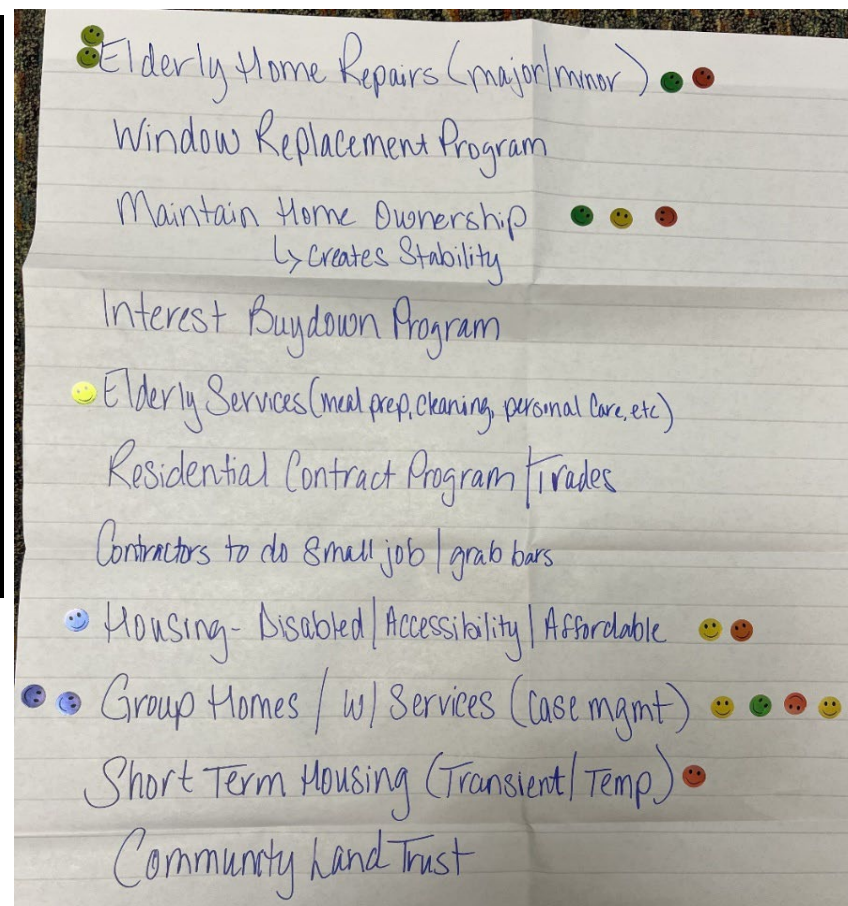 Elderly Home Repairs (major/minor)
Window Replacement Program
Maintain Home Ownership
↳ Creates Stability
Interest Buydown Program
Elderly Services (meal prep, cleaning, personal care, etc)
Residential Contract Program/Trades
Contractors to do small job/grab bars
Housing - Disabled/Accessibility/Affordable
Group Homes / w/ Services (case mgmt)
Short Term Housing (Transient/Temp)
Community Land Trust